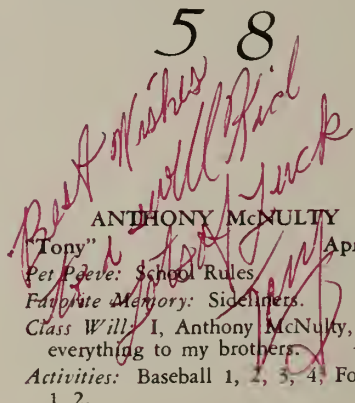 5 8
Best Wishes
to a swell Kid
Lots of Luck
Tony
ANTHONY McNULTY
"Tony" Apr
Pet Peeve: School Rules.
Favorite Memory: Sideliners.
Class Will: I, Anthony McNulty,
everything to my brothers.
Activities: Baseball 1, 2, 3, 4, Fo
1, 2.